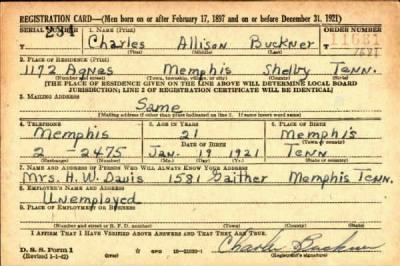 REGISTRATION CARD—(Men born on or after February 17, 1897 and on or before December 31, 1921)
SERIAL NUMBER 1. NAME (Print) ORDER NUMBER
294 Charles Allison Buckner 11681
(First) (Middle) (Last)
2. PLACE OF RESIDENCE (Print)
1172 Agnes Memphis Shelby Tenn.
(Number and street) (Town, township, village, or city) (County) (State)
[THE PLACE OF RESIDENCE GIVEN ON THE LINE ABOVE WILL DETERMINE LOCAL BOARD
JURISDICTION; LINE 2 OF REGISTRATION CERTIFICATE WILL BE IDENTICAL]
3. MAILING ADDRESS
Same
(Mailing address if other than place indicated on line 2. If same insert word same)
4. TELEPHONE 5. AGE IN YEARS 6. PLACE OF BIRTH
Memphis 21 Memphis
DATE OF BIRTH (Town or county)
2 2475 Jan. 19 1921 Tenn
(Exchange) (Number) (Mo.) (Day) (Yr.) (State or country)
7. NAME AND ADDRESS OF PERSON WHO WILL ALWAYS KNOW YOUR ADDRESS
Mrs. H. W. Davis 1581 Gaither Memphis Tenn.
8. EMPLOYER'S NAME AND ADDRESS
Unemployed
9. PLACE OF EMPLOYMENT OR BUSINESS
(Number and street or R. F. D. number) (Town) (County) (State)
I AFFIRM THAT I HAVE VERIFIED ABOVE ANSWERS AND THAT THEY ARE TRUE.
D. S. S. Form 1 GPO Charles Buckner
(Revised 1-1-42) (over) (Registrant's signature)